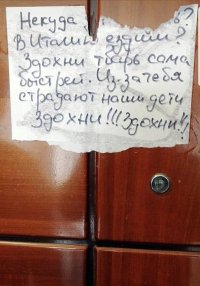 Некуда
В Италии ездили?
Здохни тварь сама
быстрей. Из за тебя
страдают наши дети
Здохни!!! Здохни!!